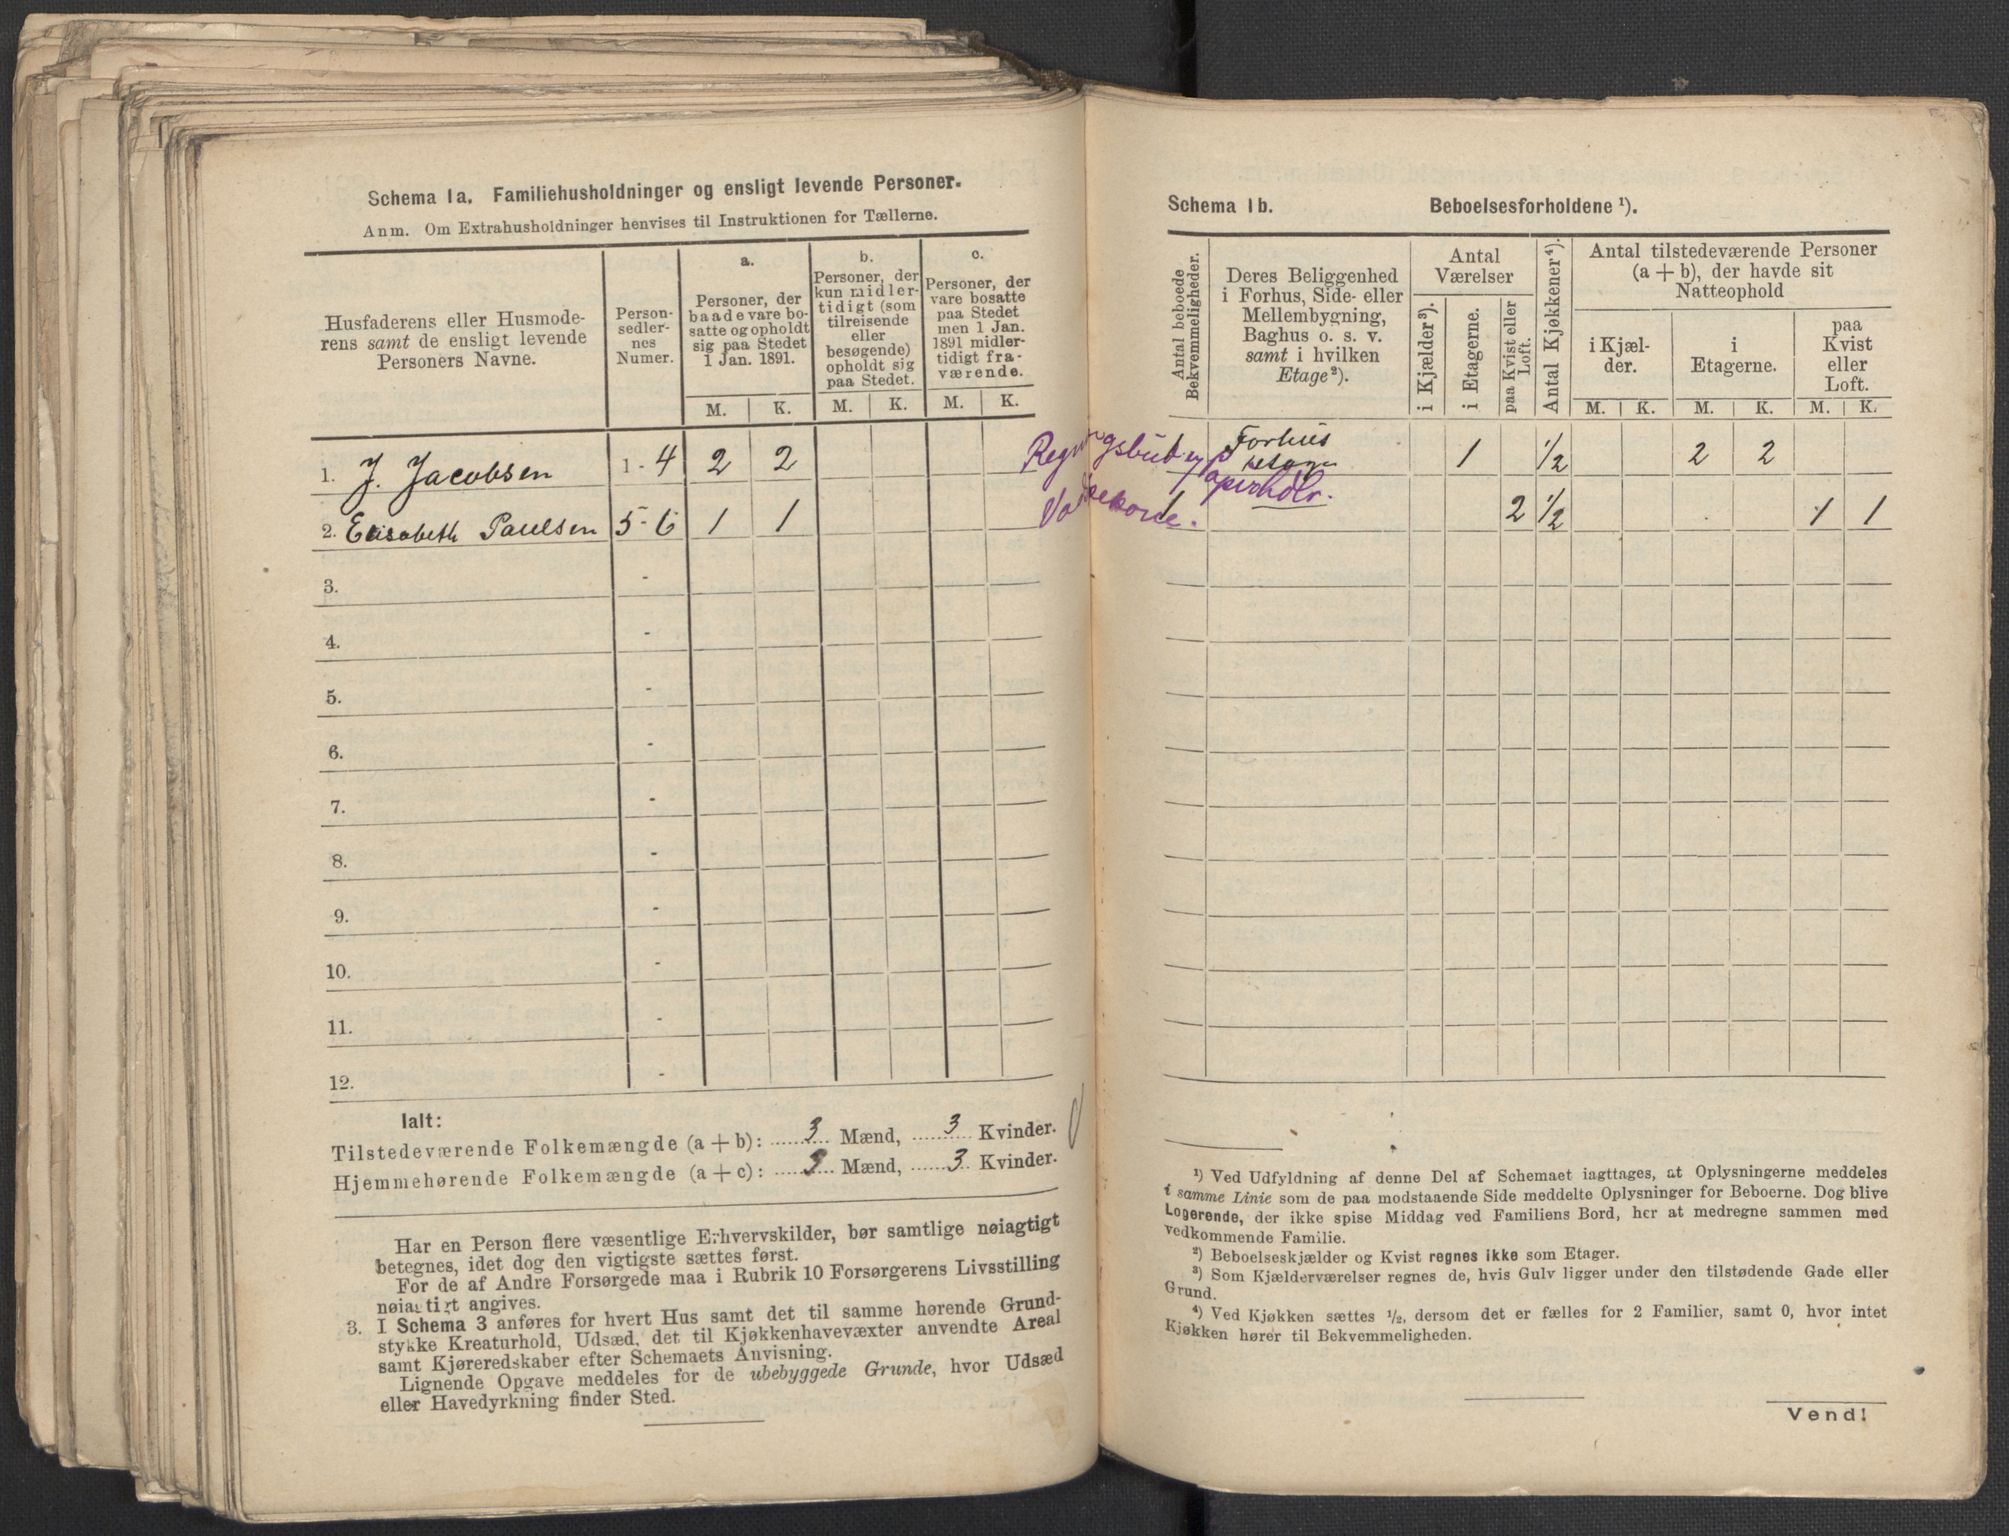 Schema 1a. Familiehusholdninger og ensligt levende Personer.
Anm. Om Extrahusholdninger henvises til Instruktionen for Tællerne.
Husfaderens eller Husmode-
rens samt de ensligt levende
Personers Navne.
Person-
sedler-
nes
Numer.
a.
Personer, der
baade vare bo-
satte og opholdt
sig paa Stedet
1 Jan. 1891.
b.
Personer, der
kun midler-
tidigt (som
tilreisende
eller
besøgende)
opholdt sig
paa Stedet.
c.
Personer, der
vare bosatte
paa Stedet
men 1 Jan.
1891 midler-
tidigt fra-
værende.
M. K. M. K. M. K.
1. J. Jacobsen 1-4 2 2
2. Elisabeth Paulsen 5-6 1 1
3. -
4. -
5. -
6. -
7. -
8. -
9. -
10. -
11. -
12. -
Ialt:
Tilstedeværende Folkemængde (a + b): 3 Mænd, 3 Kvinder.
Hjemmehørende Folkemængde (a + c): 3 Mænd, 3 Kvinder.
Har en Person flere væsentlige Erhvervskilder, bør samtlige nøiagtigt
betegnes, idet dog den vigtigste sættes først.
For de af Andre Forsørgede maa i Rubrik 10 Forsørgerens Livsstilling
nøiagtigt angives.
3. I Schema 3 anføres for hvert Hus samt det til samme hørende Grund-
stykke Kreaturhold, Udsæd, det til Kjøkkenhavevæxter anvendte Areal
samt Kjøreredskaber efter Schemaets Anvisning.
Lignende Opgave meddeles for de ubebyggede Grunde, hvor Udsæd
eller Havedyrkning finder Sted.
Schema 1b. Beboelsesforholdene ¹).
Antal beboede
Bekvemmeligheder.
Deres Beliggenhed
i Forhus, Side- eller
Mellembygning,
Baghus o. s. v.
samt i hvilken
Etage²).
Antal
Værelser
i Kjælder³).
i Etagerne.
paa Kvist eller
Loft.
Antal Kjøkkener⁴).
Antal tilstedeværende Personer
(a + b), der havde sit
Natteophold
i Kjæl-
der.
i
Etagerne.
paa
Kvist
eller
Loft.
M. K. M. K. M. K.
1 Forhus 1 ½ 2 2
1 2 ½ 1 1
¹) Ved Udfyldning af denne Del af Schemaet iagttages, at Oplysningerne meddeles
i samme Linie som de paa modstaaende Side meddelte Oplysninger for Beboerne. Dog blive
Logerende, der ikke spise Middag ved Familiens Bord, her at medregne sammen med
vedkommende Familie.
²) Beboelseskjælder og Kvist regnes ikke som Etager.
³) Som Kjælderværelser regnes de, hvis Gulv ligger under den tilstødende Gade eller
Grund.
⁴) Ved Kjøkken sættes ½, dersom det er fælles for 2 Familier, samt 0, hvor intet
Kjøkken hører til Bekvemmeligheden.
Vend!